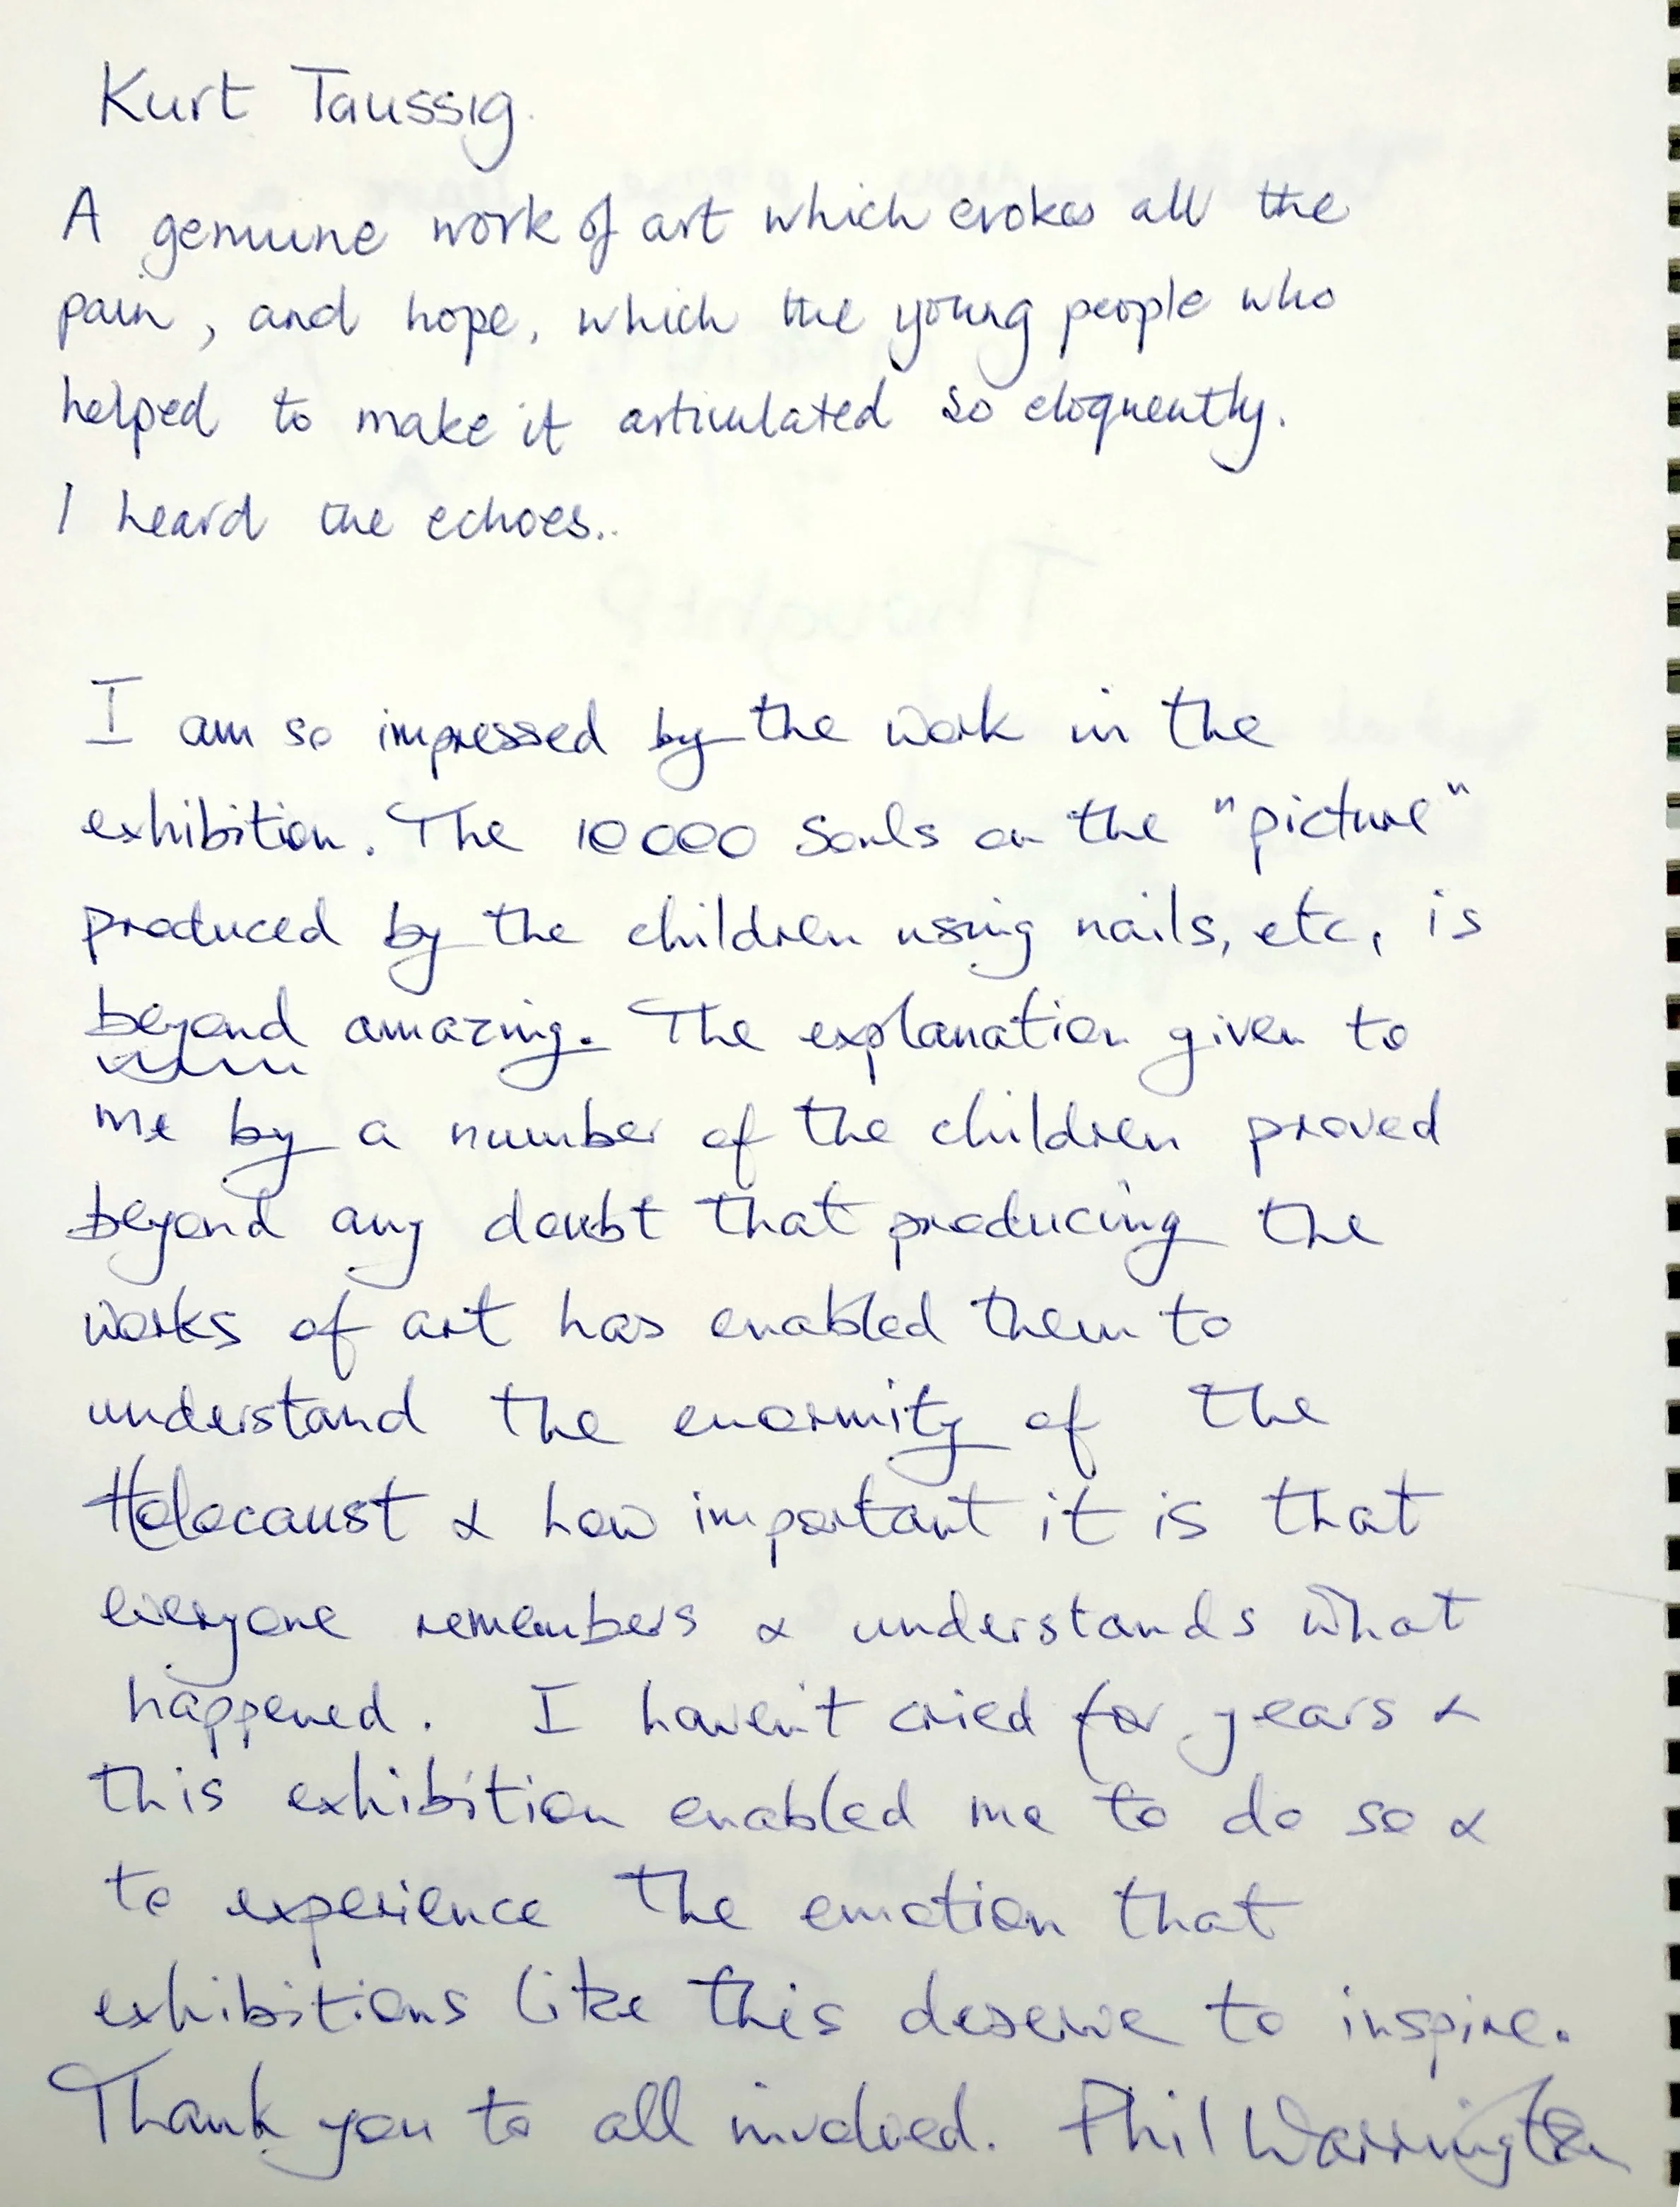 Kurt Taussig.
A genuine work of art which evokes all the
pain, and hope, which the young people who
helped to make it articulated so eloquently.
I heard the echoes..
I am so impressed by the work in the
exhibition. The 10000 Souls on the "picture"
produced by the children using nails, etc, is
beyond amazing. The explanation given to
me by a number of the children proved
beyond any doubt that producing the
works of art has enabled them to
understand the enormity of the
Holocaust & how important it is that
everyone remembers & understands what
happened. I haven't cried for years &
this exhibition enabled me to do so &
to experience the emotion that
exhibitions like this deserve to inspire.
Thank you to all involved. Phil Warrington